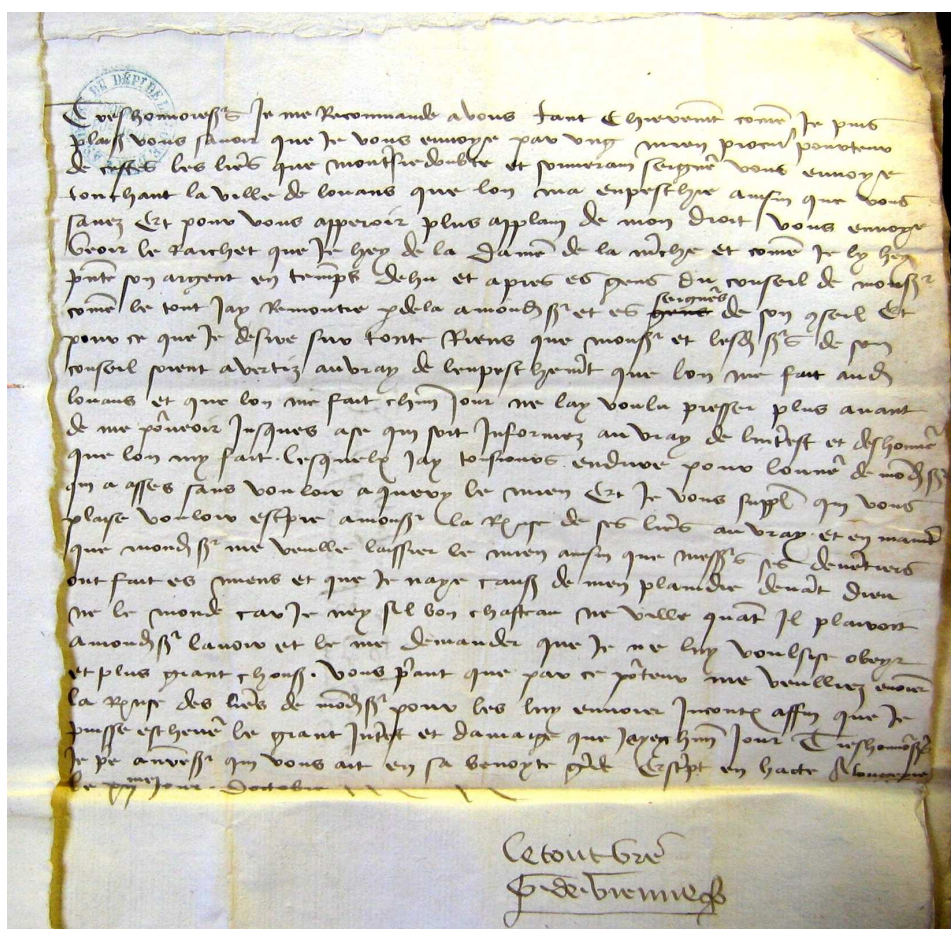 Treshonnoressr Je me Recommande a vous tant Chierement come Je puis
plaiss vous savoir que Je vous envoye par ung mien procur pourteur
de cestes les lres que montresredoubte et souverain seigneur vous envoye
touchant la ville de louans que lon ma enpeschie ainsin que vous
savez Et pour vous apperoir plus applain de mon droit vous envoye
veoir le Raichet que Je hey de la Dame de la mche et come Je ly hey
pnte son argent en temps dehu et apres es gens du conseil de monssr
come le tout Jay Remontre pdela a mondssr et es seigneurs de son conseil Et
pour ce que Je desire sur toute Riens que monssr et lesd ssrs de son
conseil soient avertiz au vray de lenpeschement que lon me fait aud
louans et que lon me fait chun Jour ne lay voulu presser plus avant
de me porveoir Jusques a se qui soit Informez au vray de linterest et deshonneur
que lon my fait. lesquelx Jay tousiours endure pour lonneur de mondssr
qui a asses sans vouloir aquery le mien Et Je vous suppl qui vous
plaise vouloir escpre a monssr la Rponse de ses lres au vray et en maniere
que mondssr me veulle laissier le mien ainsin que messrs ses devantiers
ont fait es miens et que Je naye causs de men plaindre devant dieu
ne le monde car Je ney si bon chasteau ne ville quant Il plairoit
a mondssr lavoir et le me demander que Je ne luy voulsise obeyr
et plus grant chouss. vous priant que par ce porteur me veulliez envoier
la Rponse des lres de mondssr pour les luy envoier Incontin affin que Je
puisse eschever le grant Intret et damaige que Jay en chun Jour Treshonnorssr
Je pe a nressr qui vous ait en sa benoyte grde Escript en haste
le Jour. doctobre
Le tout vre
G de vienne